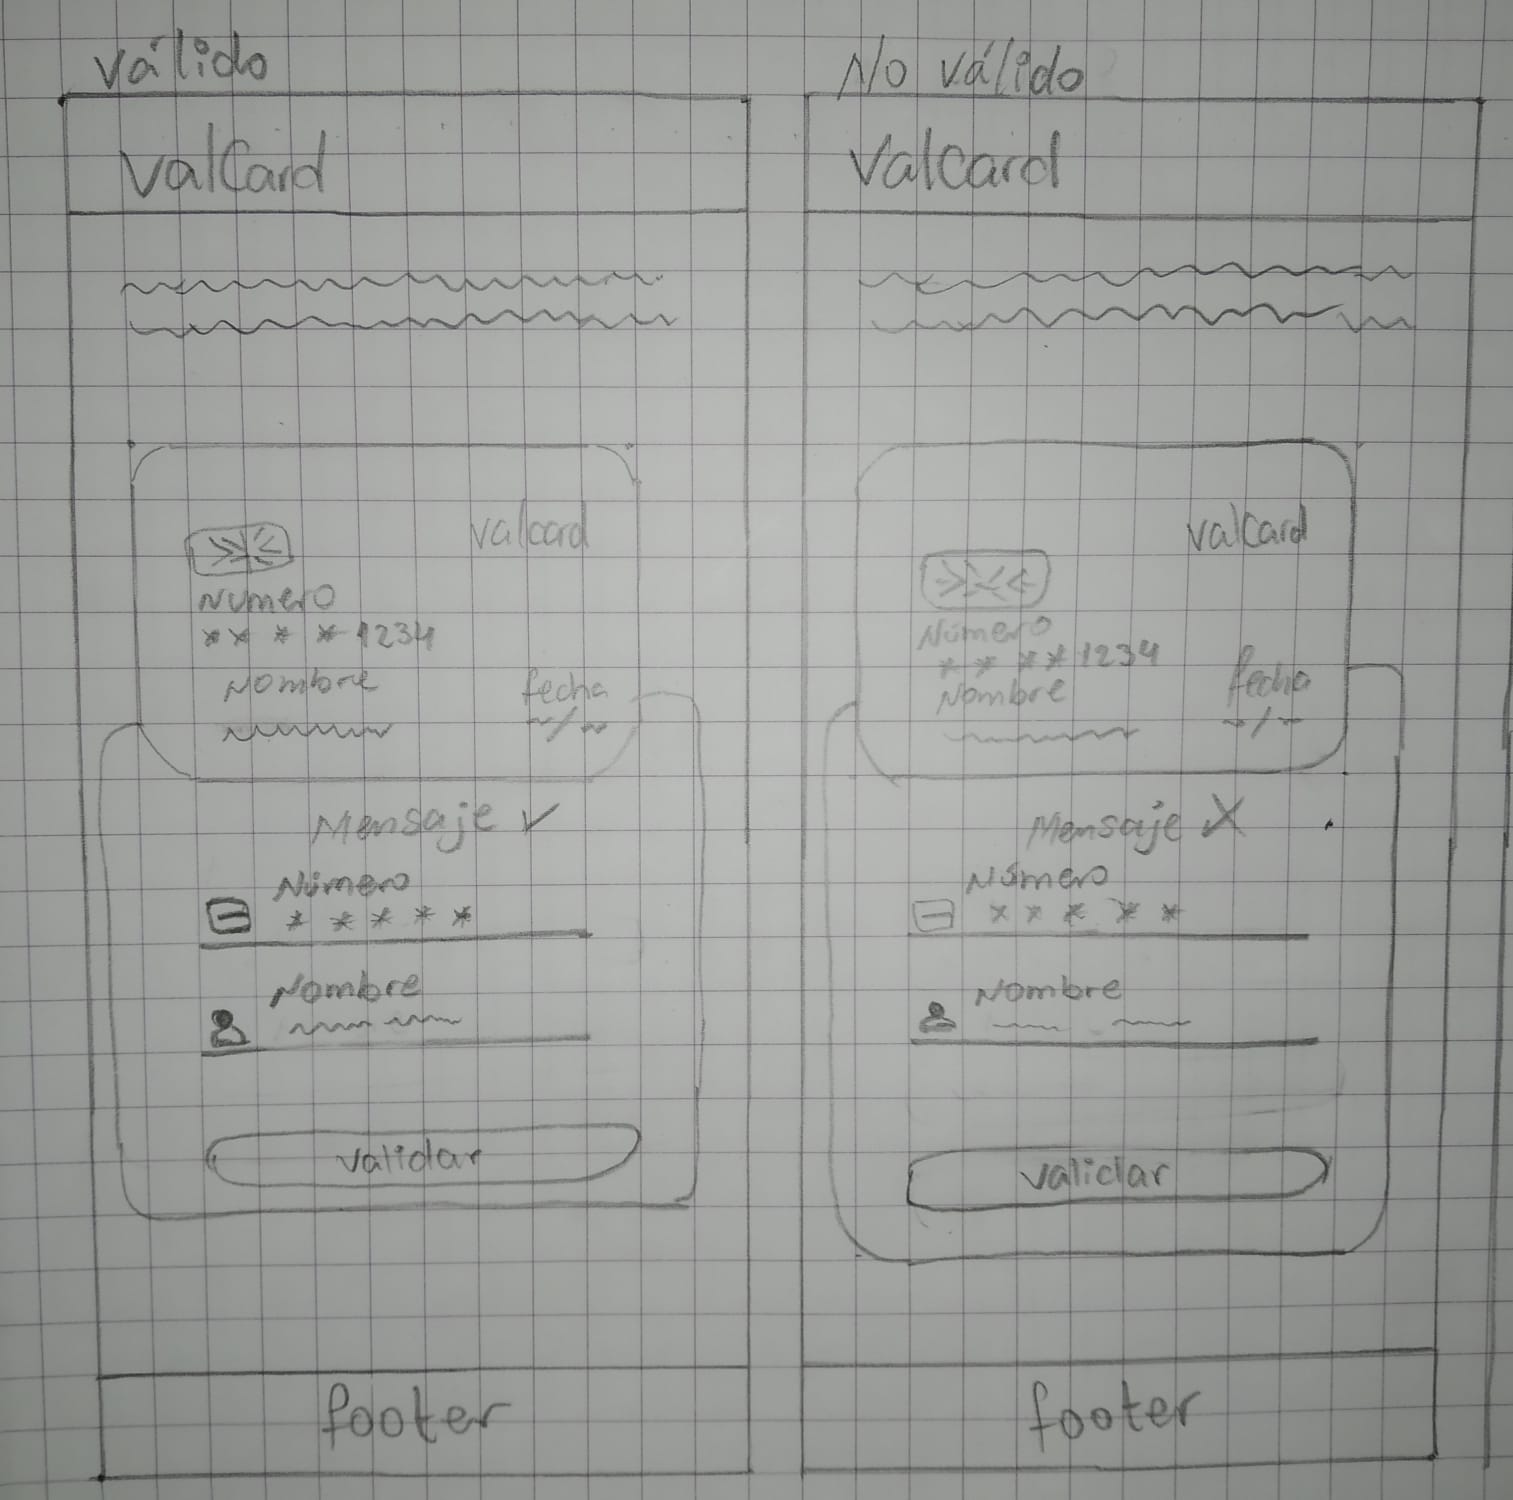 válido
ValCard
valcard
Número
**** 1234
Nombre
fecha
~/~
Mensaje ✓
Número
*****
Nombre
validar
footer
No válido
ValCard
ValCard
Número
**** 1234
Nombre
fecha
~/~
Mensaje X
Número
*****
Nombre
validar
footer